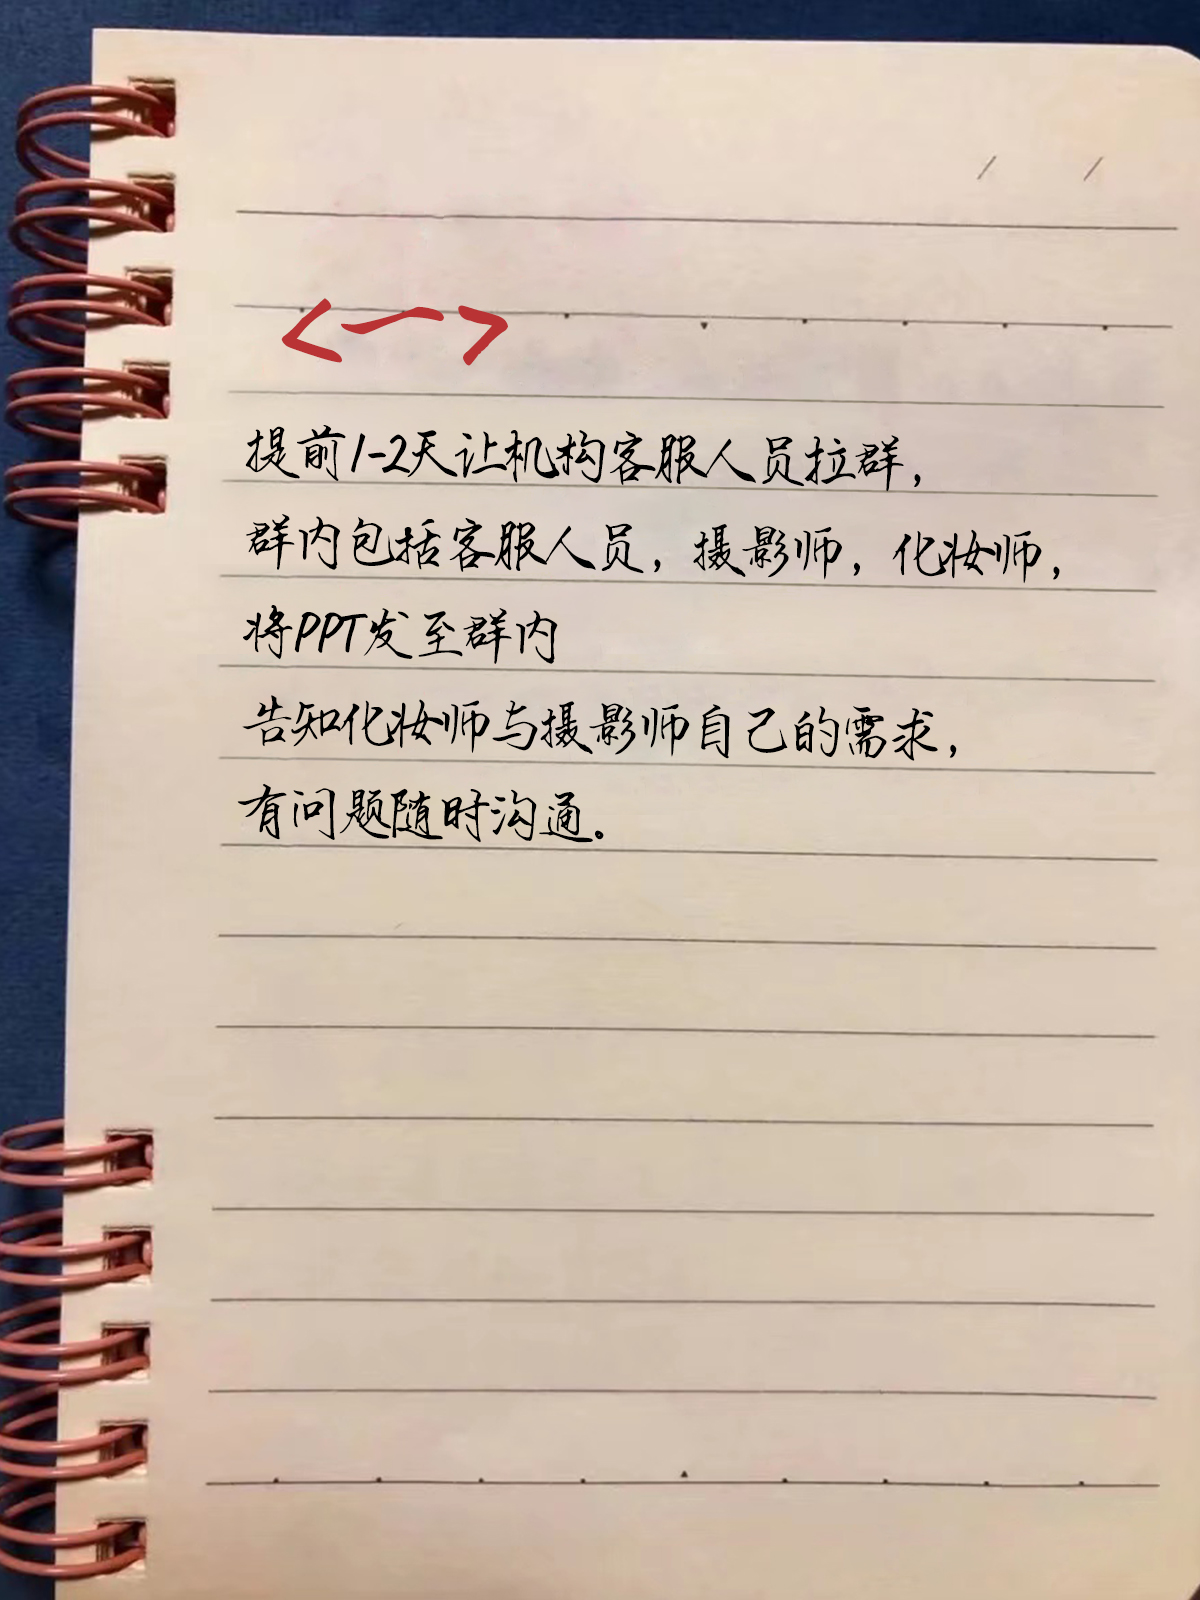 <一>
提前1-2天让机构客服人员拉群，
群内包括客服人员，摄影师，化妆师，
将PPT发至群内
告知化妆师与摄影师自己的需求，
有问题随时沟通。